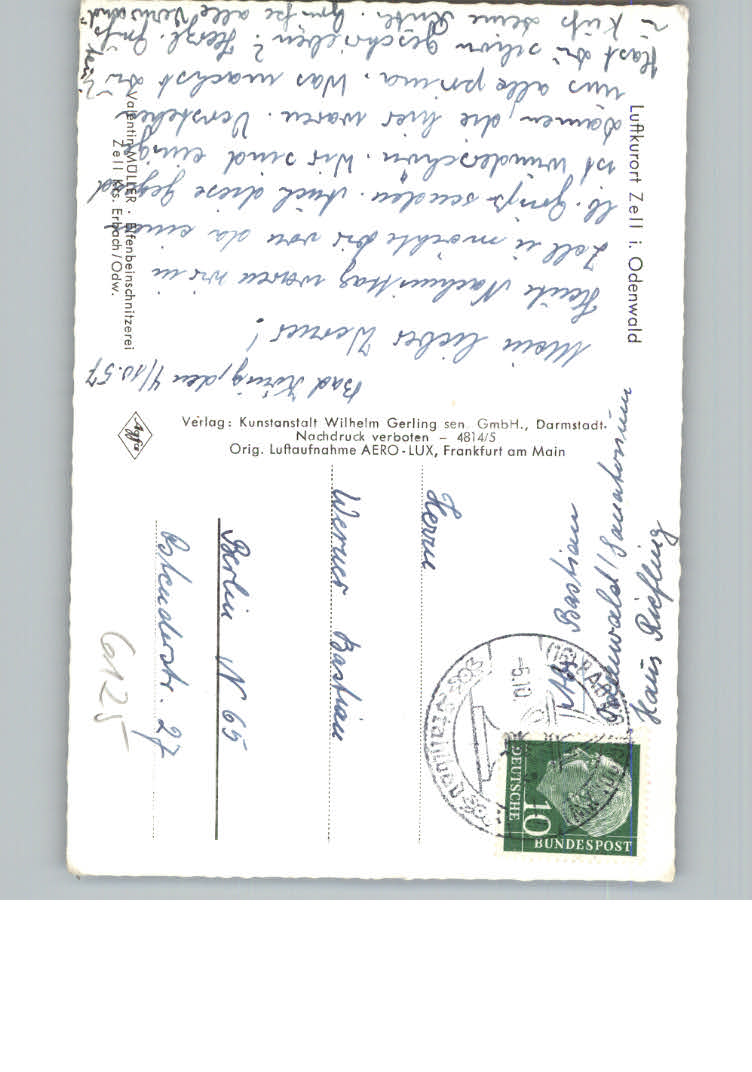 Luftkurort Zell i. Odenwald
Bad König, den 4/10.57
Mein lieber Werner!
Heute Nachmittag waren wir in
Zell u möchte Dir von da eine
lb. Gruß senden. Auch diese Gegend
ist wunderschön. Wir sind einige
Damen, die hier waren. Verstehen
uns alle prima. Was machst Du
Hast Du schon geschrieben? Herzl. Gruß
u Kuß Grüße alle
Valentin MÜLLER · Elfenbeinschnitzerei
Zell Krs. Erbach/Odw.
Agfa
Verlag: Kunstanstalt Wilhelm Gerling sen. GmbH., Darmstadt
Nachdruck verboten – 4814/5
Orig. Luftaufnahme AERO-LUX, Frankfurt am Main
Abs Bastian
Odenwald/Sanatorium
Haus Riefling
-5.10
DEUTSCHE
BUNDESPOST
10
Herrn
Werner Bastian
Berlin N 65
Ostenderstr. 27
6125